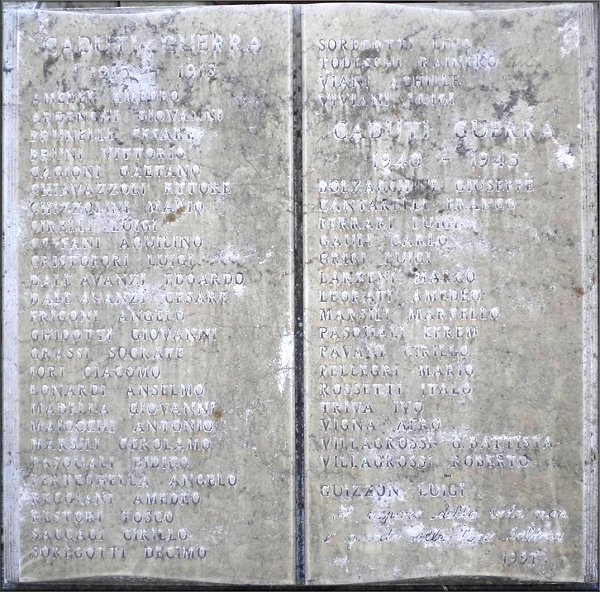 CADUTI GUERRA
1915 - 1918
AMEDEO
GIOVANNI
BRUNELLI CESARE
BRUNI VITTORIO
GAETANO
CHIAVAZZOLI ETTORE
CHIZZOLINI MARIO
CIRELLI LUIGI
AQUILINO
CRISTOFORI LUIGI
DALL'AVANZI EDOARDO
DALL'AVANZI CESARE
FRIGONI ANGELO
GHIDOTTI GIOVANNI
GRASSI SOCRATE
IORI GIACOMO
LONARDI ANSELMO
MADELLA GIOVANNI
MAIOCCHI ANTONIO
MARSILI GEROLAMO
PASQUALI DIDICO
ANGELO
REGGIANI AMEDEO
RESTORI BOSCO
SACCAGI CIRILLO
SOREGOTTI DECIMO
SOREGOTTI LINO
TODESCHI RAINERO
VIANI ACHILLE
VIVIANI LUIGI
CADUTI GUERRA
1940 - 1945
GIUSEPPE
CANTARELLI FRANCO
FERRARI LUIGI
GAULI CARLO
LUIGI
MARCO
LEORATI AMEDEO
MARSILI MARCELLO
PASQUALI EFREM
PAVANI CIRILLO
PELLEGRI MARIO
ROSSETTI ITALO
TRIVA IVO
VIGNA AFRO
VILLAGROSSI G.BATTISTA
VILLAGROSSI ROBERTO
GUIZZON LUIGI
della
1991